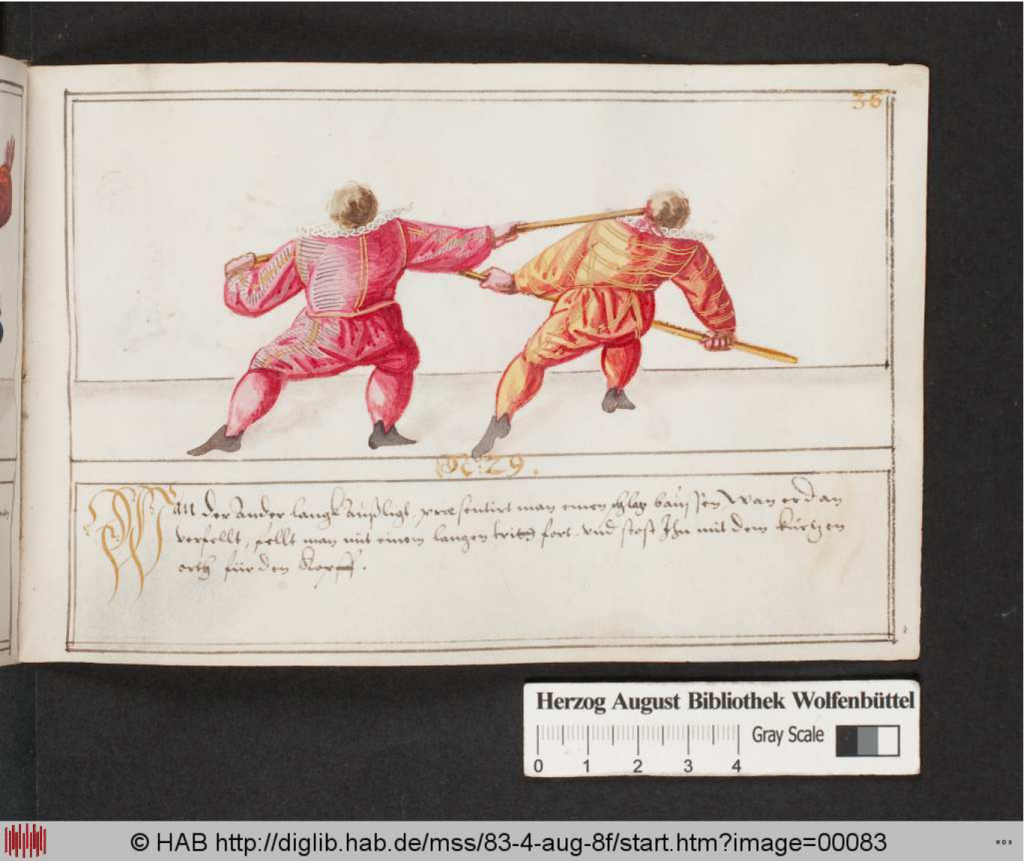 36
N: 29.
Wan der Ander langk außligt, præsentirt man einen schlag baussen, Wan er dan
verfellt, fellt man mit einem langen tritt fort. vnd stost Ihn mit dem kürtzen
orth für den Kopff.
Herzog August Bibliothek Wolfenbüttel
0 1 2 3 4 Gray Scale
© HAB http://diglib.hab.de/mss/83-4-aug-8f/start.htm?image=00083